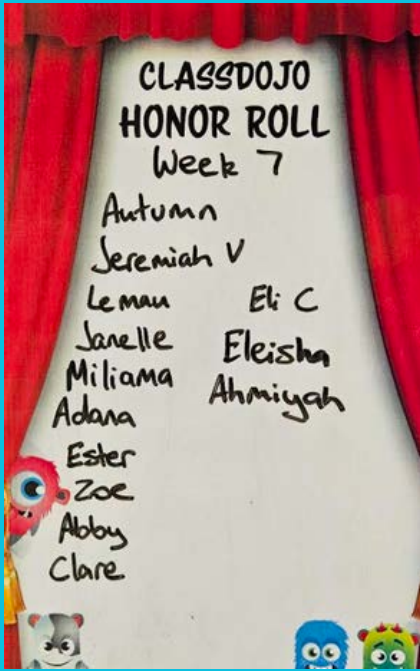 CLASSDOJO
HONOR ROLL
Week 7
Autumn
Jeremiah V
Lemau
Janelle
Miliama
Adana
Ester
Zoe
Abby
Clare
Eli C
Eleisha
Ahmiyah